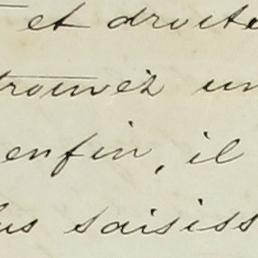 et droite
trouvez un
enfin, il
lus saisiss